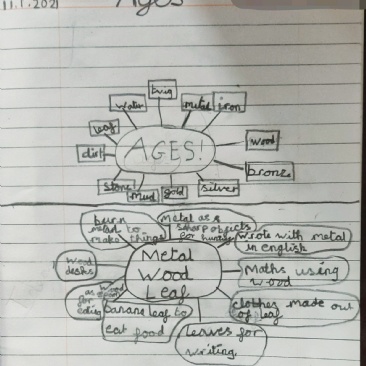 11.1.2021
Ages
twig
water
metal
iron
leaf
AGES!
wood
dirt
bronze
stone
mud
gold
silver
burn
metal to
make things
metal as
sharp objects
for hunting
wrote with metal
in english
Metal
Wood
Leaf
wood
desks
Maths using
wood
wood
as
for
eating
banana leaf to
eat food
clothes made out
of leaf
leaves for
writing.